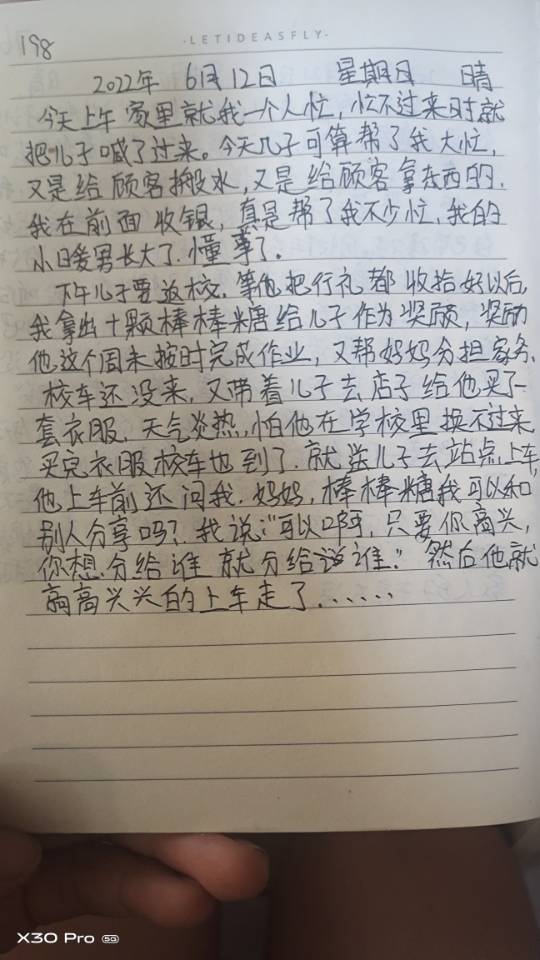 198
·LETIDEASFLY·
2022年 6月12日 星期日 晴
今天上午家里就我一个人忙,忙不过来时就
把儿子喊了过来。今天儿子可算帮了我大忙,
又是给顾客搬水,又是给顾客拿东西的.
我在前面收银,真是帮了我不少忙.我的
小暖男长大了.懂事了。
下午儿子要返校.等他把行礼都收拾好以后,
我拿出十颗棒棒糖给儿子作为奖顾,奖励
他这个周末按时完成作业,又帮妈妈分担家务、
校车还没来,又带着儿子去店子给他买了一
套衣服、天气炎热,怕他在学校里换不过来.
买完衣服校车也到了.就送儿子去站点上车,
他上车前还问我.妈妈,棒棒糖我可以和
别人分享吗?.我说:“可以啊,只要你高兴,
你想分给谁就分给谁.”然后他就
高高兴兴的上车走了......
X30 Pro 5G